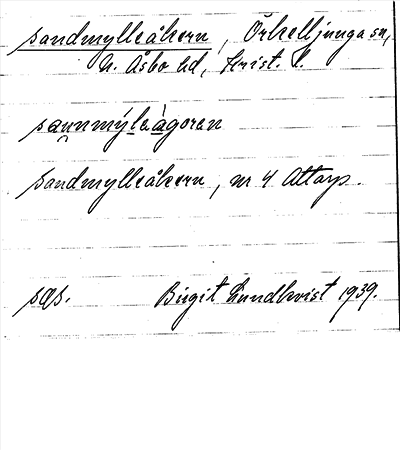 sandmylleåkern, Örkelljunga sn,
N. Åsbo hd, Krist. l.
sannmýlaàgoren
sandmylleåkern, nr 4 Attarp.
sæs.
Birgit Lundkvist 1939.